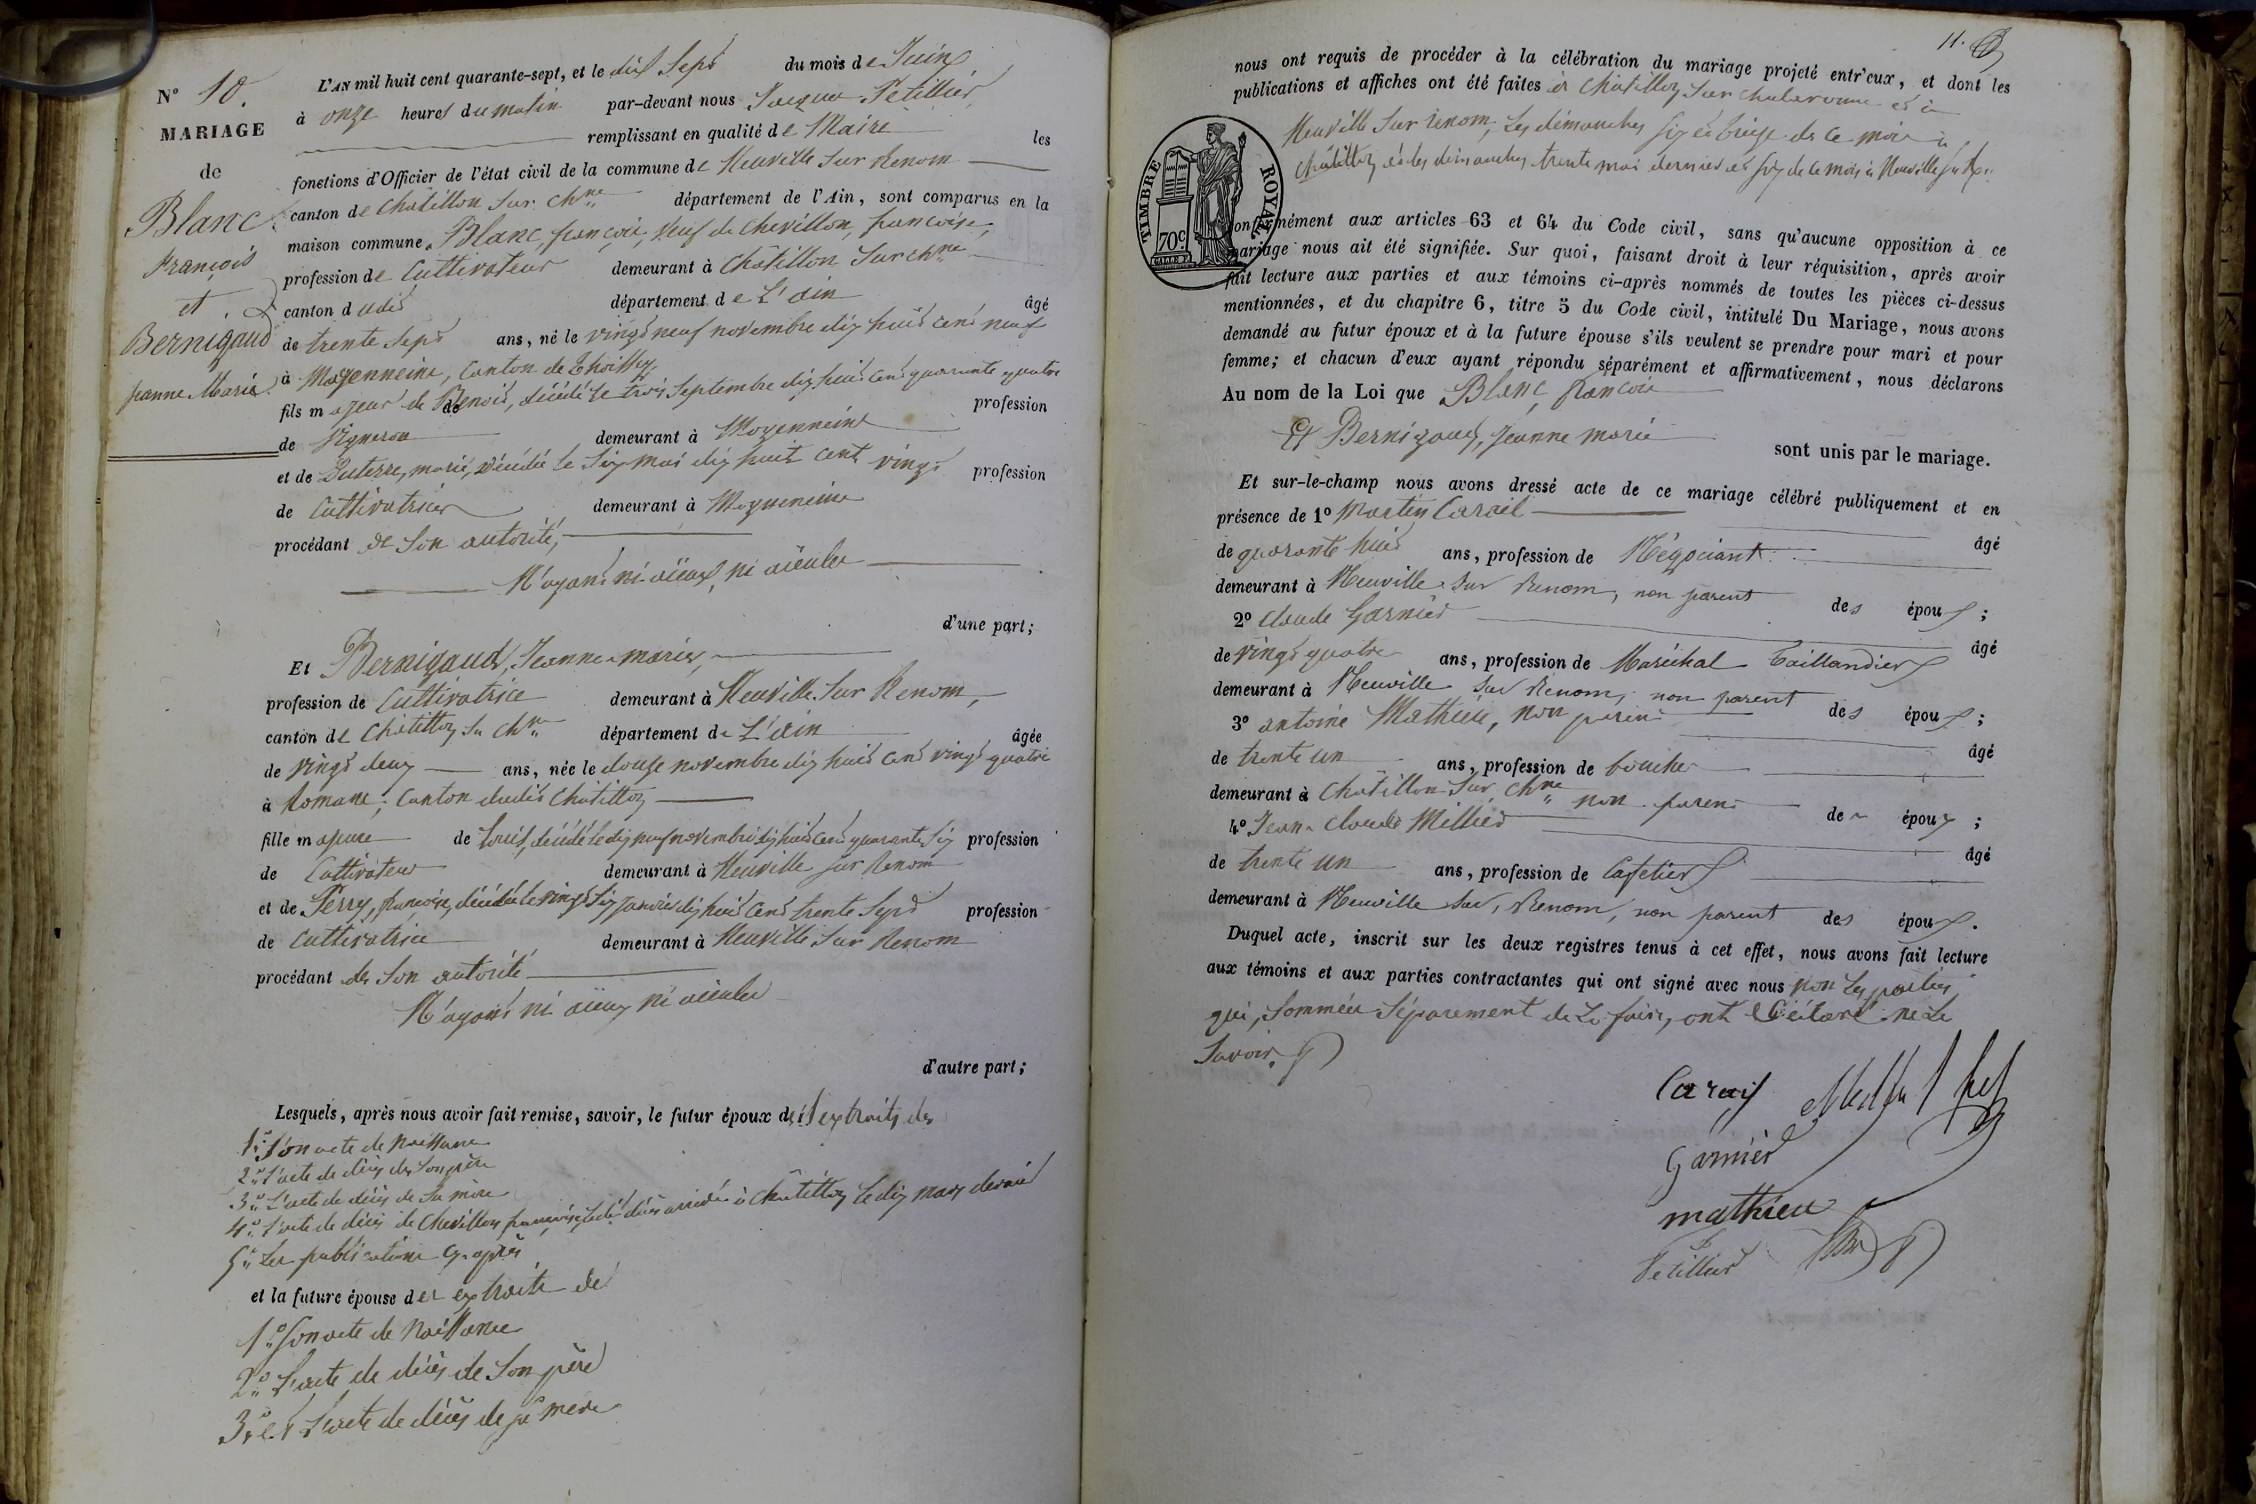 N° 10.
MARIAGE
de
Blanc
François
et
Bernigaud
Jeanne Marie
L'AN mil huit cent quarante-sept, et le dix Sept du mois de Juin
à onze heures du matin par-devant nous Jacques Pétillier,
remplissant en qualité de Maire les
fonctions d'Officier de l'état civil de la commune de Neuville Sur Renom
canton de Chatillon Sur Chne département de l'Ain, sont comparus en la
maison commune, Blanc, françois, Veuf de Chevillon, françoise,
profession de Cultivateur demeurant à Châtillon Sur chne
canton dudit département de L'ain âgé
de trente Sept ans, né le vingt neuf novembre dix huit cent neuf
à Mogenneins, Canton de Thoissey,
fils majeur de Benoit, décédé le trois Septembre dix huit cent quarante quatre profession
de Vigneron demeurant à Mogenneins
et de Duterre, marie, décédée le Six mai dix huit cent vingt profession
de Cultivatrice demeurant à Mogenneins
procédant de Son autorité,
N'ayant ni aïeux, ni aïeules
d'une part;
Et Bernigaud, Jeanne-marie,
profession de Cultivatrice demeurant à Neuville Sur Renom,
canton de Châtillon Su Chne département de L'ain âgée
de vingt deux ans, née le douze novembre dix huit cent vingt quatre
à Romans, Canton dudit Châtillon
fille majeure de Louis, décédé le dix neuf novembre dix huit cent quarante Six profession
de Cultivateur demeurant à Neuville Sur Renom
et de Perry, françoise, décédée le vingt Six Janvier dix huit cent trente Sept profession
de Cultivatrice demeurant à Neuville Sur Renom
procédant de Son autorité
N'ayant ni aïeux ni aïeules
d'autre part;
Lesquels, après nous avoir fait remise, savoir, le futur époux des extraits de
1° Son acte de Naissance
2° L'acte de décès de Son père
3° L'acte de décès de Sa mère
4° L'acte de décès de Chevillon françoise, décès arrivé à Châtillon le dix mars dernier
5° Les publications ci-après
et la future épouse des extraits de
1° Son acte de Naissance
2° L'acte de décès de Son père
3° et L'acte de décès de Sa mère
11.
nous ont requis de procéder à la célébration du mariage projeté entr'eux, et dont les
publications et affiches ont été faites à Châtillon Sur Chalaronne et à
Neuville Sur Renom, Les dimanches Six et treize de ce mois à
Châtillon et les dimanches trente mai dernier et Six de ce mois à Neuville Sur Rn
TIMBRE ROYAL
70c
conformément aux articles 63 et 64 du Code civil, sans qu'aucune opposition à ce
mariage nous ait été signifiée. Sur quoi, faisant droit à leur réquisition, après avoir
fait lecture aux parties et aux témoins ci-après nommés de toutes les pièces ci-dessus
mentionnées, et du chapitre 6, titre 5 du Code civil, intitulé Du Mariage, nous avons
demandé au futur époux et à la future épouse s'ils veulent se prendre pour mari et pour
femme; et chacun d'eux ayant répondu séparément et affirmativement, nous déclarons
Au nom de la Loi que Blanc, françois
Et Bernigaud, Jeanne marie sont unis par le mariage.
Et sur-le-champ nous avons dressé acte de ce mariage célébré publiquement et en
présence de 1° Martin Carail âgé
de quarante huit ans, profession de Négociant
demeurant à Neuville Sur Renom, non parent des époux;
2° Claude Garnier âgé
de vingt quatre ans, profession de Maréchal Taillandier
demeurant à Neuville Sur Renom, non parent des époux;
3° antoine Mathieu, non parent âgé
de trente un ans, profession de boucher
demeurant à Châtillon Sur Chne non parent des époux;
4° Jean Claude Millier âgé
de trente un ans, profession de Cafetier
demeurant à Neuville Sur Renom, non parent des époux.
Duquel acte, inscrit sur les deux registres tenus à cet effet, nous avons fait lecture
aux témoins et aux parties contractantes qui ont signé avec nous non Les parties
qui, Sommées Séparement de Le faire, ont déclaré ne Le
Savoir.
Carail
Garnier
mathieu
Pétillier